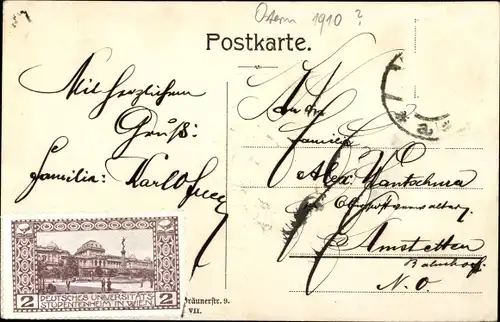 Ostern 1910?
Postkarte.
Mit herzlichem
Gruß:
Familie: Karl
An die
Familie
Alex. Wantschura
Amstetten
Bahnhof
N.Ö.
2 DEUTSCHES UNIVERSITÄTS 2
STUDENTENHEIM IN WIEN
Bräunerstr. 9.
VII.